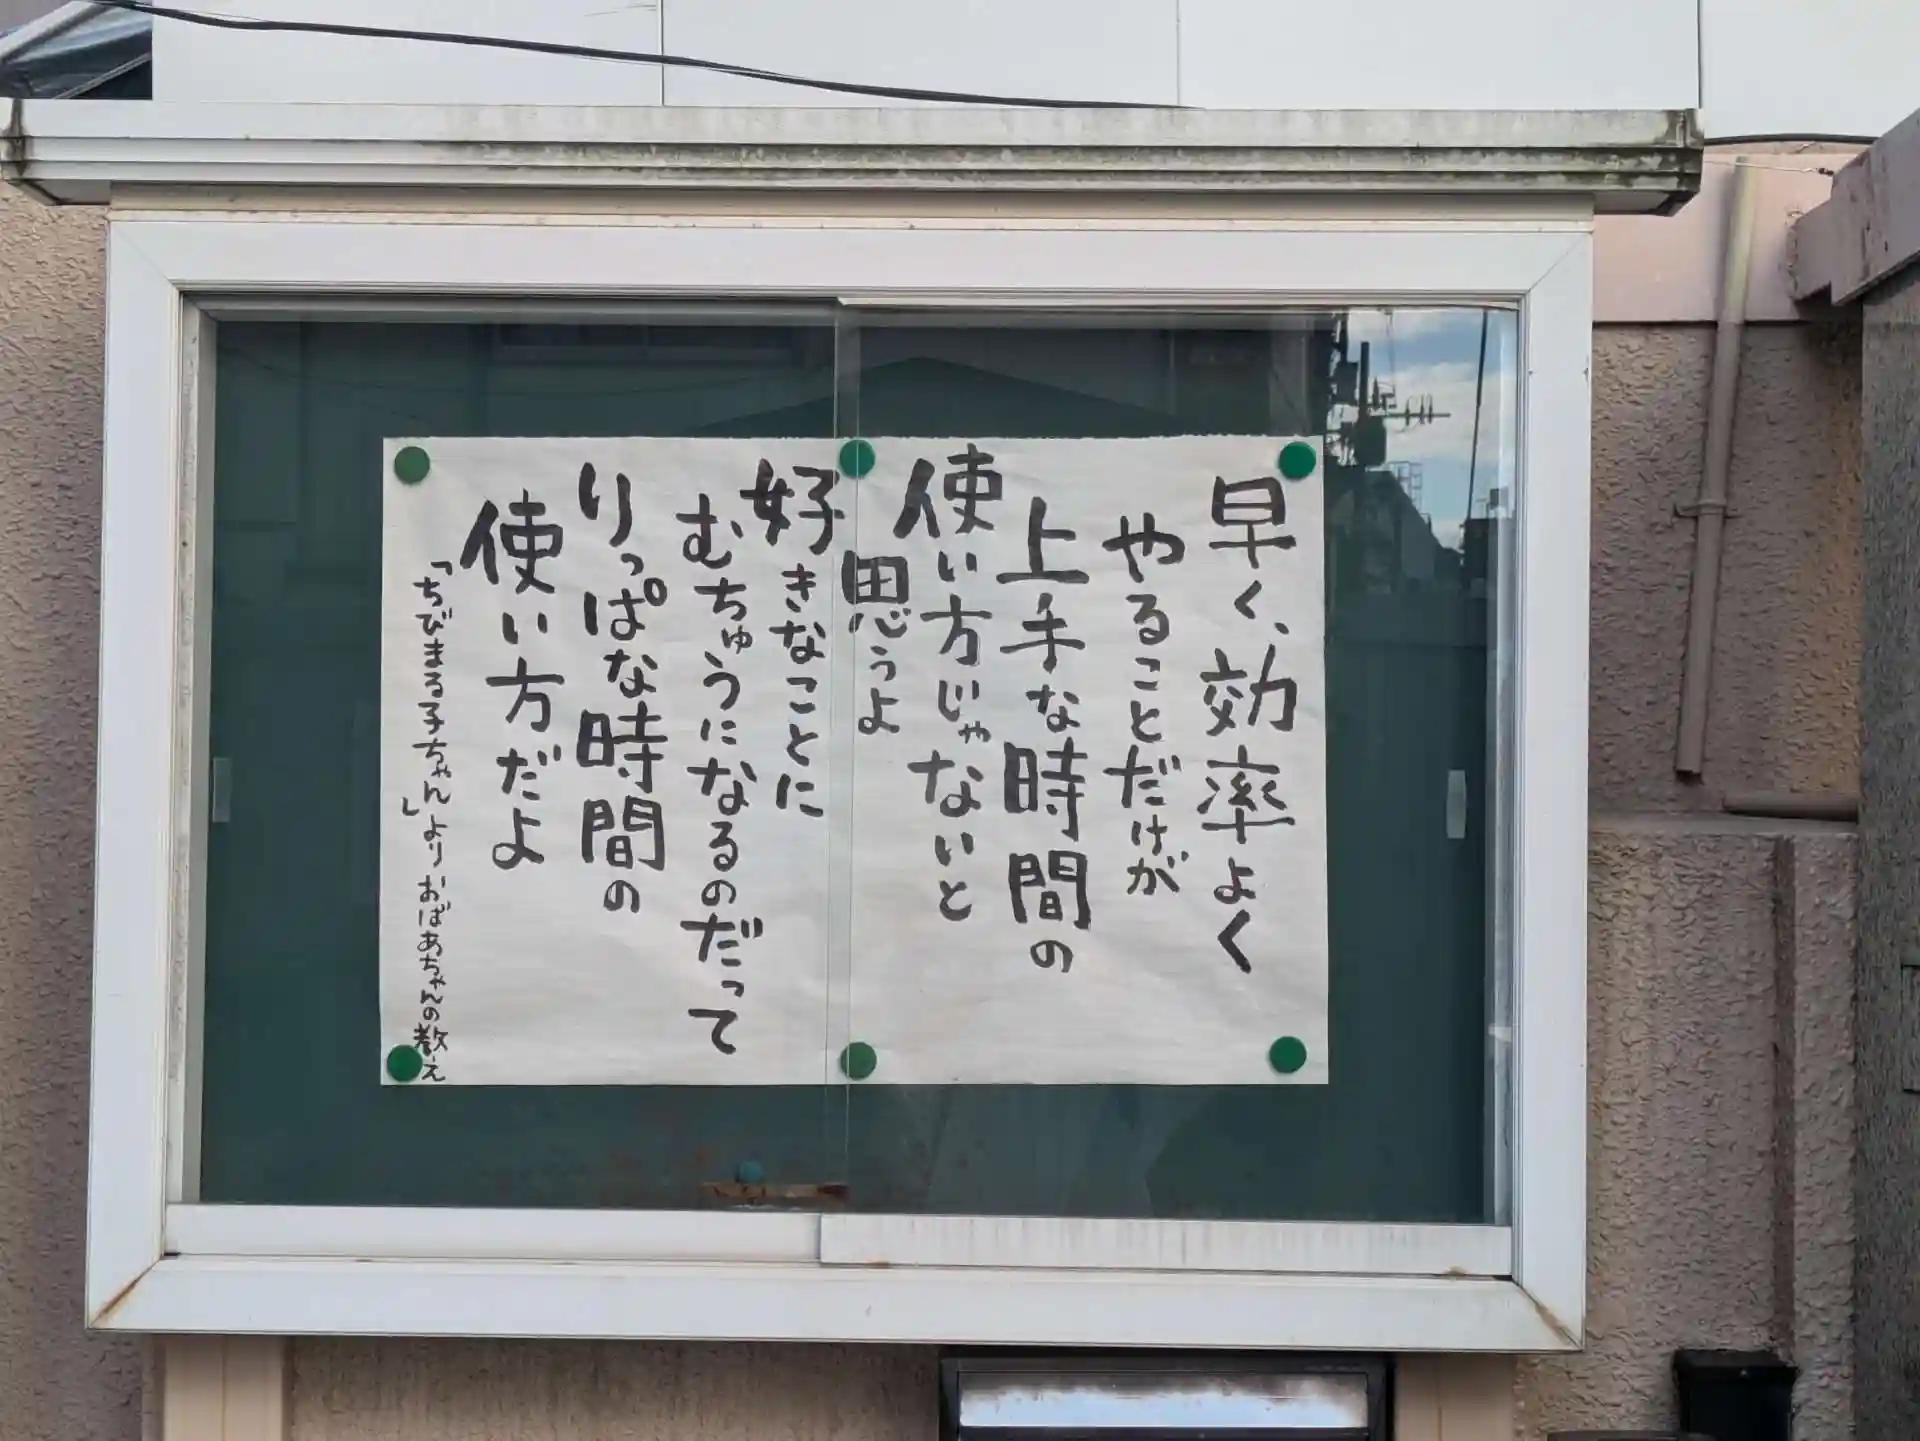 早く、効率よく
やることだけが
上手な時間の
使い方じゃないと
思うよ
好きなことに
むちゅうになるのだって
りっぱな時間の
使い方だよ
「ちびまる子ちゃん」よりおばあちゃんの教え